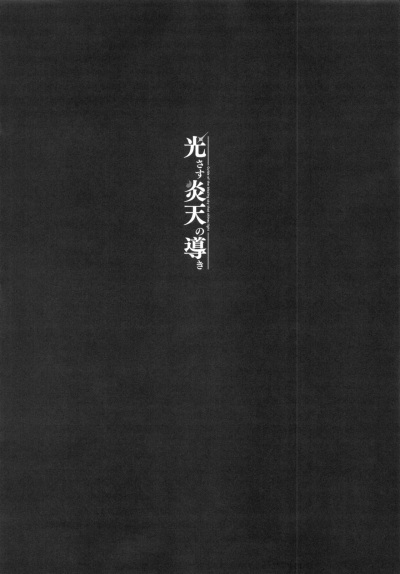 光さす炎天の導き